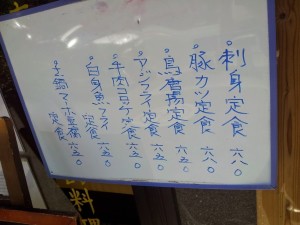 刺身定食 六八〇
豚カツ定食 六八〇
鳥唐揚定食 六五〇
アジフライ定食 六五〇
牛肉コロッケ定食 六五〇
白身魚フライ
定食 六五〇
土鍋マーボ豆腐
定食 六五〇
料理